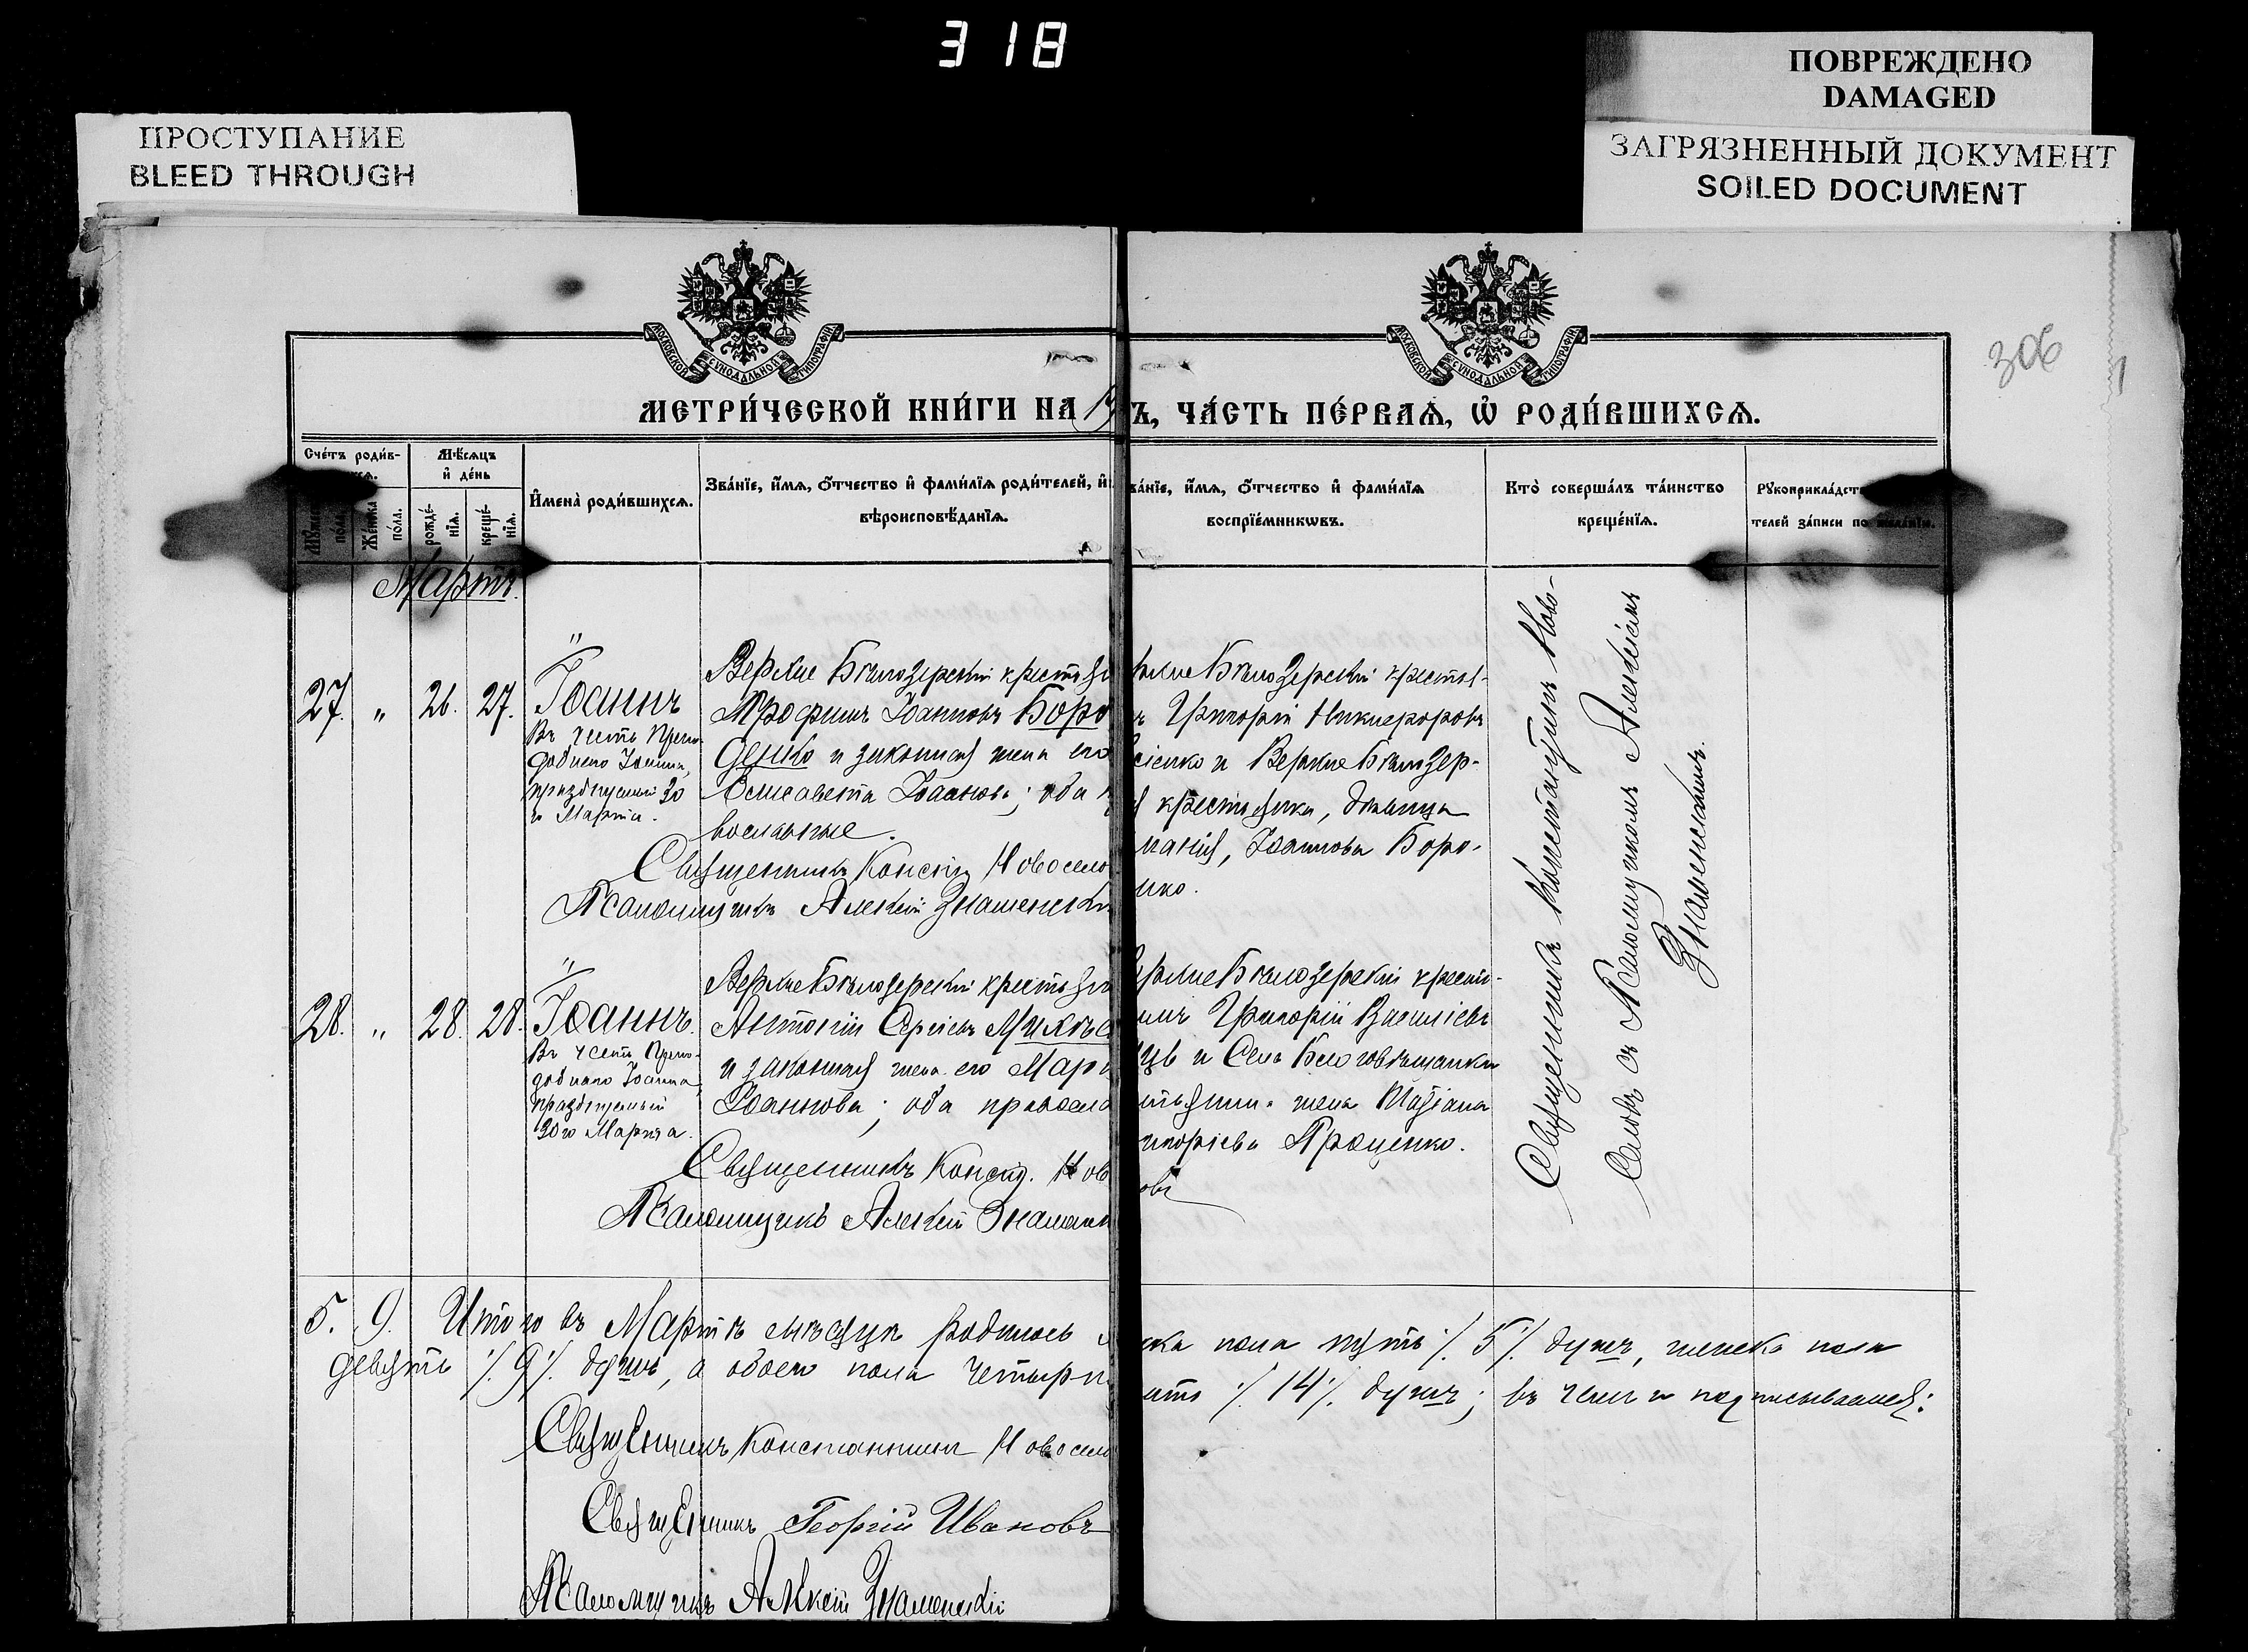 318
ПОВРЕЖДЕНО
DAMAGED
ПРОСТУПАНИЕ
BLEED THROUGH
ЗАГРЯЗНЕННЫЙ ДОКУМЕНТ
SOILED DOCUMENT
МОСКОВСКОЙ СѴНОДАЛЬНОЙ ТИПОГРАФІИ
МОСКОВСКОЙ СѴНОДАЛЬНОЙ ТИПОГРАФІИ
306
МЕТРИ́ЧЕСКОЙ КНИ́ГИ НА
Ъ, ЧА́СТЬ ПЕ́РВАѦ, Ѡ РОДИ́ВШИХСѦ.
Сче́тъ роди́в-
Мѣ́сѧцъ
и҆ де́нь
Же́нска
по́ла.
рожде́-
нїѧ.
креще́-
нїѧ.
И҆мена̀ роди́вшихсѧ.
Зва́нїе, и҆́мѧ, ѻ҆́тчество и҆ фами́лїѧ роди́телей, и҆
вѣроисповѣ́данїѧ.
ва́нїе, и҆́мѧ, ѻ҆́тчество и҆ фами́лїѧ
воспрїе́мникѡвъ.
Кто̀ соверша́лъ та́инство
креще́нїѧ.
Рꙋкоприкла́дст
телей за́писи по
Мартъ.
27. " 26. 27. Іоаннъ
Въ честь Препо-
добнаго Іоанна,
празднуемый 30
го Марта.
Верхне Бѣлозерскій крестьян
Трофимъ Іоанновъ Боро
денко и законная жена его
Елисавета Іоаннова; оба п
вославные.
Священникъ Констн Новосело
Псаломщикъ Алексѣй Знаменскі
рхне Бѣлозерскій крестья-
ъ Григорій Никифоровъ
сіенко и Верхне Бѣлозер-
я крестьянка, дѣвица
панія, Іоаннова Боро-
нко.
Священникъ Константинъ Ново-
селовъ съ Псаломщикомъ Алексѣемъ
Знаменскимъ.
28. " 28. 28. Іоаннъ.
Въ честь Препо-
добнаго Іоанна,
празднуемый
30го Марта.
Верхне Бѣлозерскій крестьян
Антоній Сергіевъ Михѣе
и законная жена его Мар
Іоаннова; оба правосла
Священникъ Констд. Нов
Псаломщикъ Алексѣй Знаменск
ерхне Бѣлозерскій кресть-
инъ Григорій Василіевъ
цъ и Села Благовѣщанки
жена
игорієва Проценко.
овъ
5. 9. Итого въ Мартѣ мѣсяцѣ родилось м
девять ./. 9 ./. душъ, а обоего пола четырн
ска пола пять ./. 5 ./. душъ, женска пола
ать ./. 14 ./. душъ; въ чемъ и подписываемся:
Священникъ Константинъ Новосело
Священникъ Георгій Ивановъ
Псаломщикъ Алексѣй Знаменскій